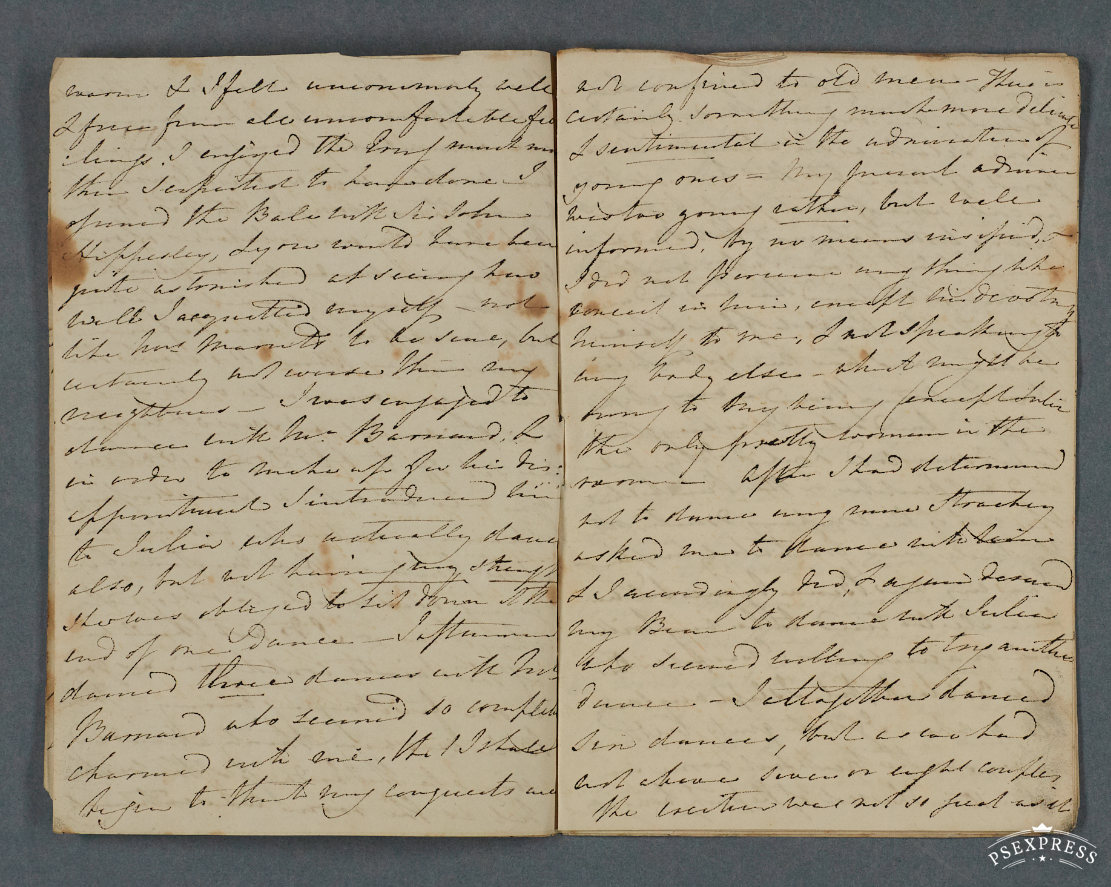 warm & I felt uncommonly well
& free from all uncomfortable fee
lings. I enjoyed the Eveng much more
than I expected to have done. I
opened the Ball with Sir John
Hippesley, & you would have been
quite astonished at seeing how
well I acquitted myself – not
like to be sure, but
certainly not worse than my
neighbours – I was engaged to
dance with Mr. Barnard, &
in order to make up for his dis:
appointment I introduced him
to Julia who actually danced
also, but not having any strength
she was obliged to sit down at the
end of one dance – I afterwards
danced three dances with Mr
Barnard who seemed so completely
charmed with me, that I shall
begin to think my conquests are
not confined to old men – There is
certainly something much more delicate
& sentimental in the admiration of
young ones – My present admirer
was too young rather, but well
informed, by no means insipid, &
I did not perceive any thing like
conceit in him, except his devoting
himself to me, & not speaking to
any body else – which might be
owing to my being (except Julia
the only pretty woman in the
room – After I had determined
not to dance any more Strachey
asked me to dance with him
& I accordingly did, & again desired
my Beau to dance with Julia
who seemed willing to try another
dance – I altogether danced
six dances, but as we had
not above seven or eight couples
the exertion was not so great as it
PSEXPRESS